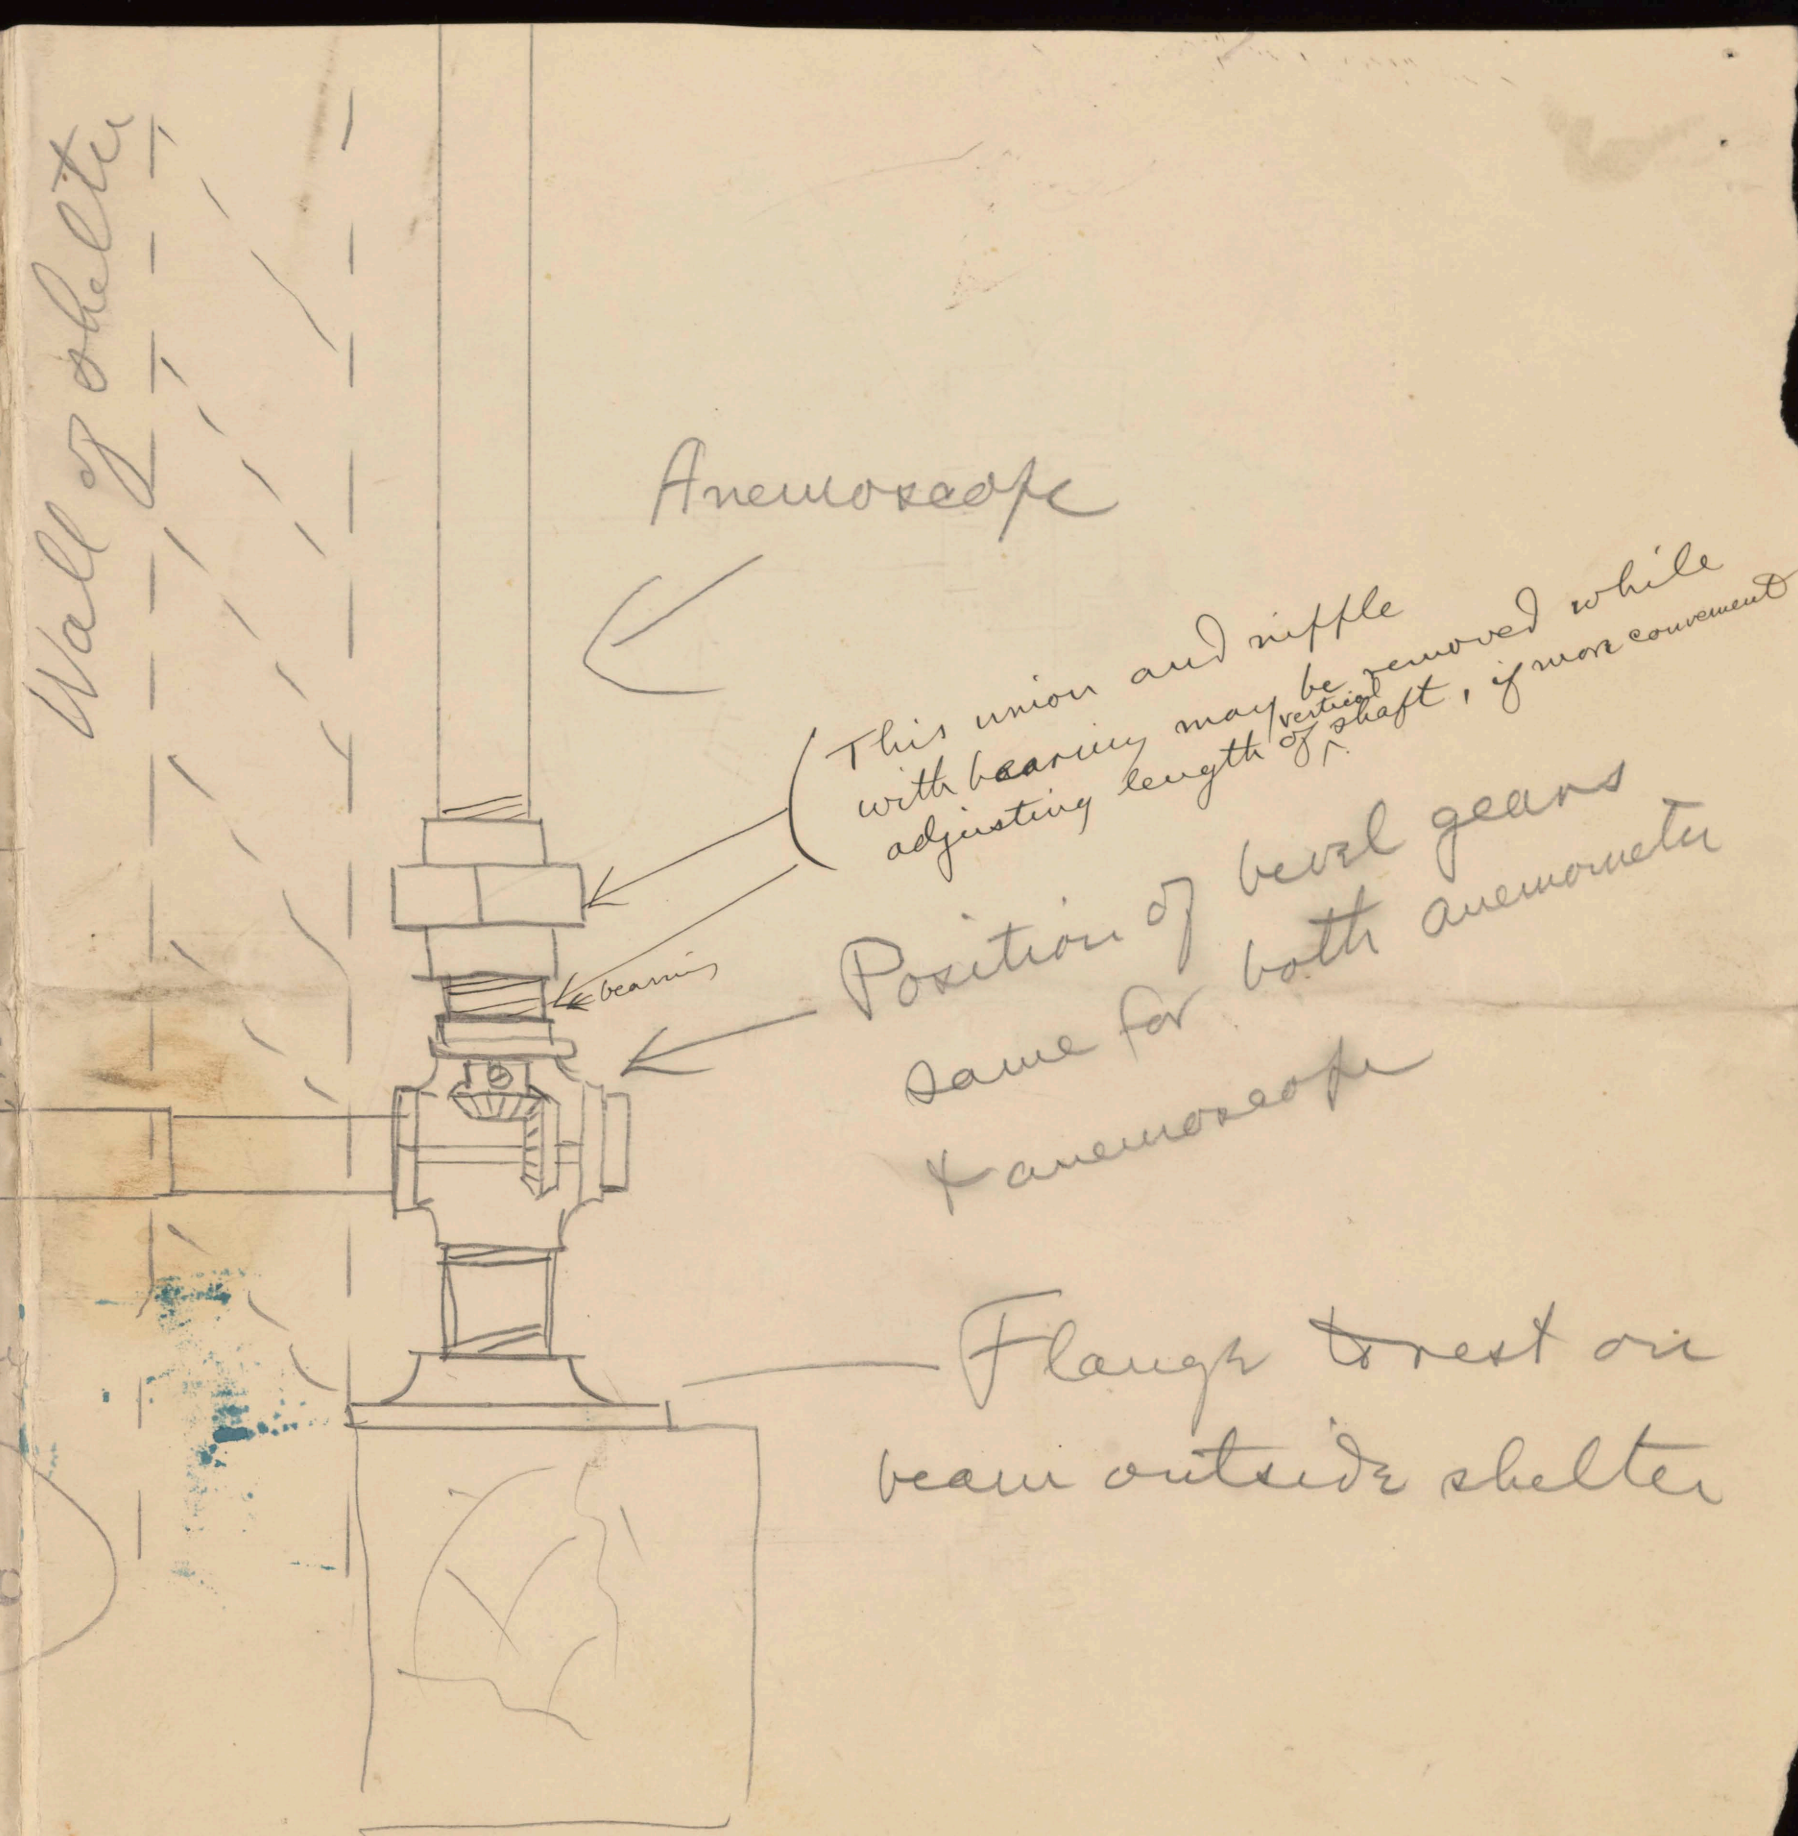 Wall of shelter
Anemoscope
This union and nipple
with bearing may be removed while
adjusting length of vertical shaft, if more convenient
bearing
Position of bevel gears
same for both anemometer
& anemoscope
Flange to rest on
beam outside shelter